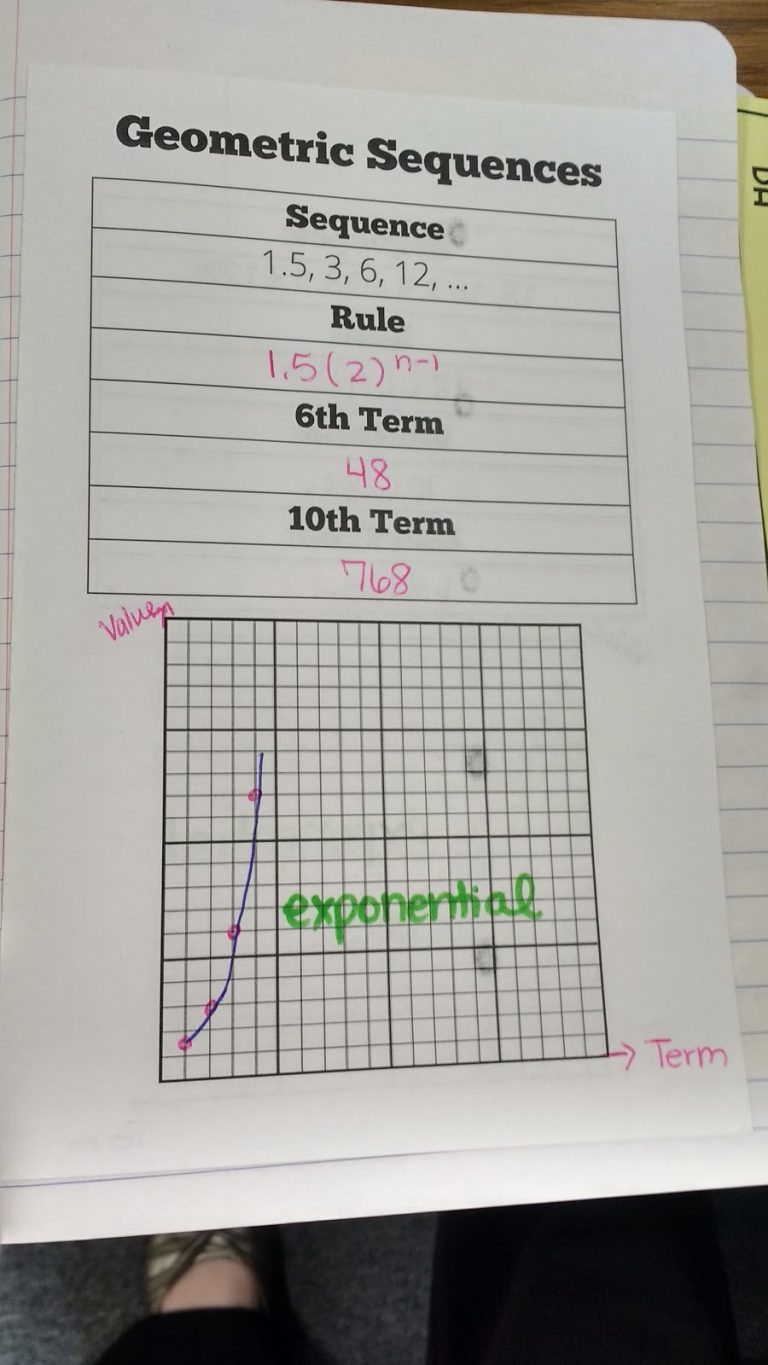 Geometric Sequences
Sequence
1.5, 3, 6, 12, ...
Rule
1.5(2)ⁿ⁻¹
6th Term
48
10th Term
768
Value
exponential
→ Term
DH